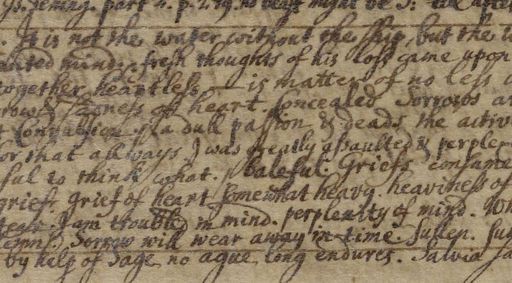 part 2. p. 219. no blast might be
. It is not the water without the ship, but the
mind; fresh thoughts of his loss came upon
together heartless — is matter of no less
of heart concealed Sorrows
a dull passion & deads the
for that allways I was greatly assaulted & perple
ful to think what. baleful Griefs consume
grief. grief of heart. somewhat heavy. heaviness of
I am troubled in mind. perplexity of mind.
Sorrow will wear away in time. Sullen.
by help of Sage no ague long endures. Salvia